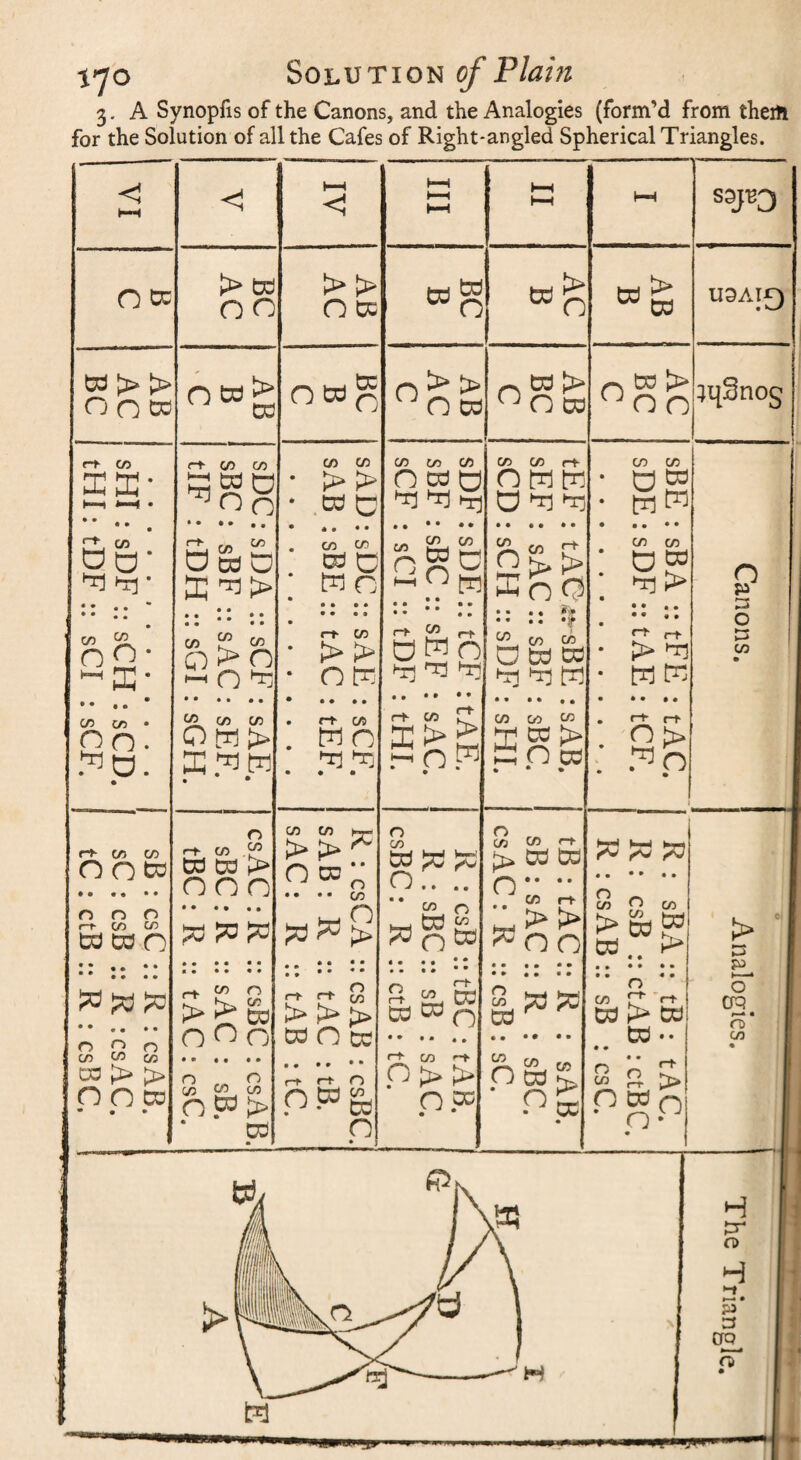 170 SOLUTION of Plain
3. A Synopſis of the Canons, and the Analogies (form'd from them
for the Solution of all the Caſes of Right-angled Spherical Triangles.
Caſes
Given
Sought
Canons.
Analogies.
The Triangle.
I
AB
B
AC
BC
C
sBE : sBA :: tFE : tAC.
. . . . . . . . . .
sDE : sDF :: tAE : tCF.
R : sBA :: tB : tAC.
R : csB :: ctAB : ctBC.
R : csAB :: sB : csC.
II
AC
B
AB
BC
C
tEF : tAC :: sBE : sAB.
sEF : sAC :: sBF : sBC.
sCD : sCH :: sDF : sHI.
tB : tAC :: R : sAB.
sB : sAC :: R : sBC.
csAC : R :: csB : sC.
III
BC
B
AB
AC
C
sDF : sDE :: tCF : tAE.
sBF : sBC :: sEF : sAC.
sCF : sCI :: tDF : tHI.
R : csB :: tBC : tAB.
R : sBC :: sB : sAC.
csBC : R :: ctB : tC.
IV
AB
AC
BC
B
C
sAD : sDC :: sAE : sCF.
sAB : sBE :: tAC : tEF.
. . . . . . . . . .
R : csCA :: csAB : csBC.
sAB : R :: tAC : tB.
sAC : R :: tAB : tC.
V
BC
AC
AB
B
C
sDC : sDA :: sCF : sAE.
sBC : sBF :: sAC : sEF.
tIF : tDH :: sGI : sGH.
csAC : R :: csBC : csAB.
sBC : R :: sAC : sB.
tBC : R :: tAC : csC.
VI
B
C
AB
AC
BC
. . . . . . . . . .
sHI : sDF :: sCH : sCD.
tHI : tDF :: sCI : sCF.
sB : csC :: R : csAB.
sC : csB :: R : csAC.
tC : ctB :: R : csBC.
B
G
H
A
C
D
F
I
E